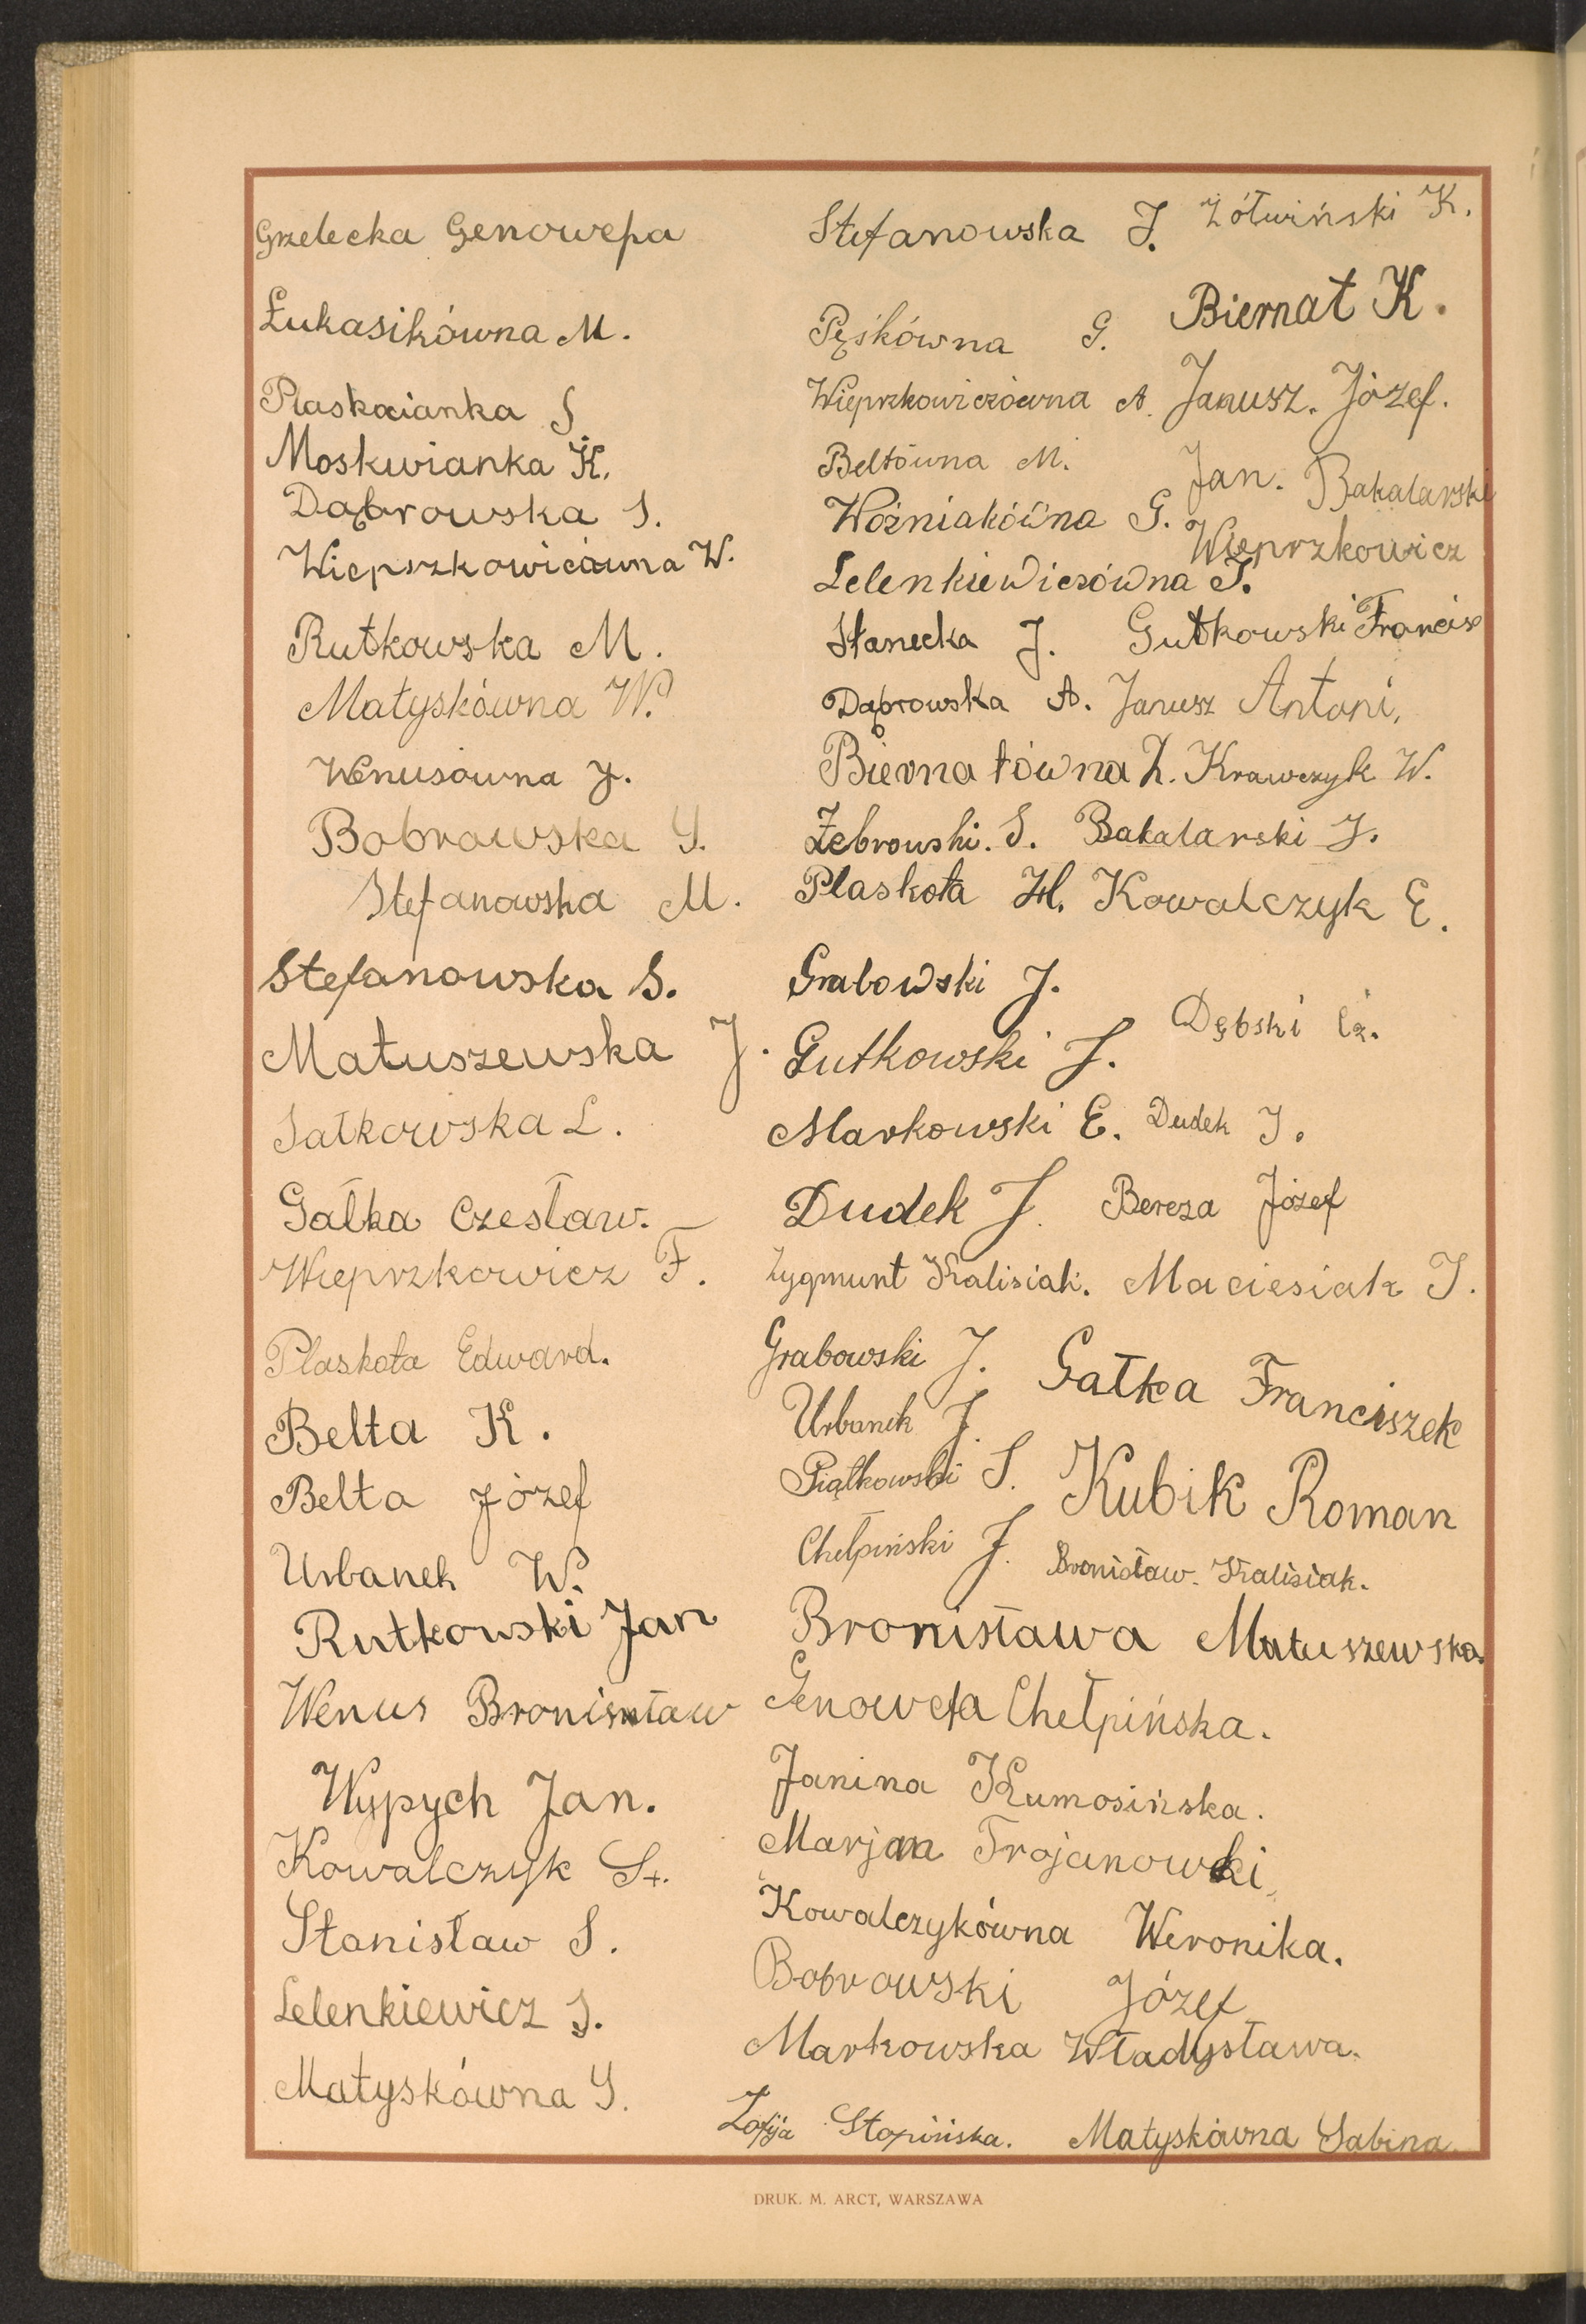 Grzelecka Genowefa
Łukasikówna M.
Plaskocianka S
Moskwianka K.
Dąbrowska S.
Wiepszkowicówna W.
Rutkowska M.
Matyskówna W.
Wenusówna J.
Bobrowska S.
Stefanowska M.
Stefanowska S.
Matuszewska J.
Sałkowska L.
Gałka Czesław.
Wieprzkowicz F.
Plaskota Edward.
Belta K.
Belta Józef
Urbanek W.
Rutkowski Jan
Wenus Bronisław
Wypych Jan.
Kowalczyk St.
Stanisław S.
Lelenkiewicz S.
Matyskówna S.
Stefanowska J. Żółwiński K.
Pęśkówna G. Biernat K.
Wieprzkowiczówna A. Janusz. Józef.
Beltówna M. Jan. Bakalarski
Woźniakówna G. Wieprzkowicz
Lelenkiewiczówna J.
Stanecka J. Gutkowski Francisz
Dąbrowska A. Janusz Antoni,
Biernatówna Z. Krawczyk W.
Żebrowski. S. Bakalarski J.
Plaskota H. Kowalczyk E.
Grabowski J.
Dębski Cz.
Gutkowski J.
Markowski E. Dudek J.
Dudek J. Bereza Józef
Zygmunt Kalisiak. Maciesiak J.
Grabowski J. Gałka Franciszek
Urbanek J.
Piątkowski S. Kubik Roman
Chełpiński J. Bronisław. Kalisiak.
Bronisława Matuszewska.
Genowefa Chełpińska.
Janina Kumosińska.
Marjan Trojanowski,
Kowalczykówna Weronika.
Bobrowski Józef
Markowska Władysława.
Zofija Stopińska. Matyskówna Sabina
DRUK. M. ARCT, WARSZAWA